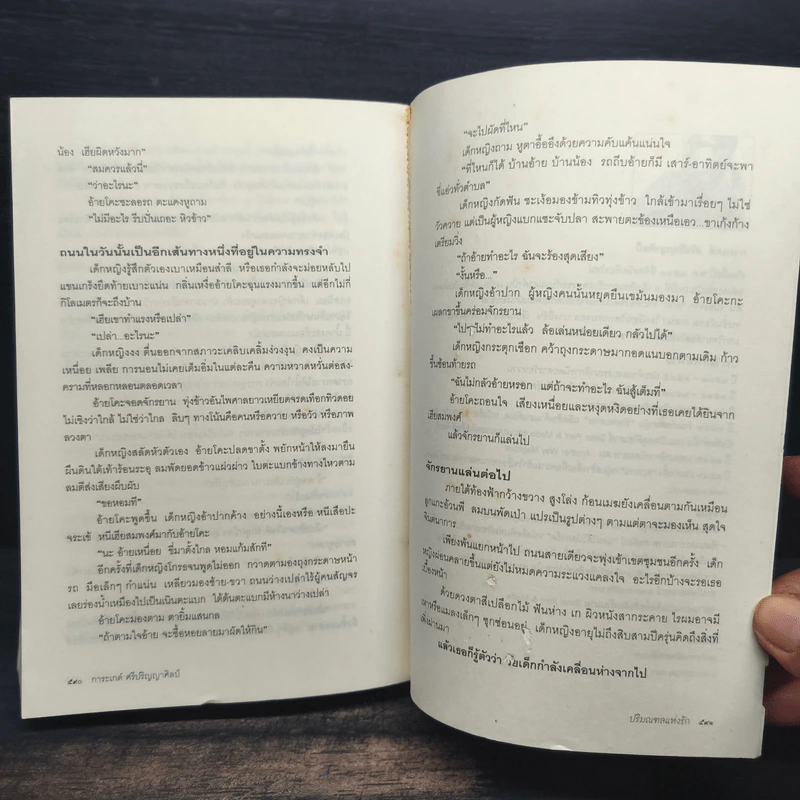 น้อง เฮียผิดหวังมาก”
“สมควรแล้วนี่”
“ว่าอะไรนะ”
อ้ายโคะชะลอรถ ตะแคงหูถาม
“ไม่มีอะไร รีบปั่นเถอะ หิวข้าว”
ถนนในวันนั้นเป็นอีกเส้นทางหนึ่งที่อยู่ในความทรงจำ
เด็กหญิงรู้สึกตัวเองเบาเหมือนสำลี หรือเธอกำลังจะม่อยหลับไป
แขนเกร็งยึดท้ายเบาะแน่น กลิ่นเหงื่ออ้ายโคะฉุนแรงมากขึ้น แต่อีกไม่กี่
กิโลเมตรก็จะถึงบ้าน
“เฮียเขาทำแรงหรือเปล่า”
“เปล่า...อะไรนะ”
เด็กหญิงงง ตื่นออกจากสภาวะเคลิบเคลิ้มง่วงงุน คงเป็นความ
เหนื่อย เพลีย การนอนไม่เคยเต็มอิ่มในแต่ละคืน ความหวาดหวั่นต่อสง-
ครามที่หลอกหลอนตลอดเวลา
อ้ายโคะจอดจักรยาน ทุ่งข้าวอันไพศาลยาวเหยียดจรดเทือกทิวดอย
ไม่เชิงว่าใกล้ ไม่ใช่ว่าไกล ลิบๆ ทางโน้นคือคนหรือควาย หรือวัว หรือภาพ
ลวงตา
เด็กหญิงสลัดหัวตัวเอง อ้ายโคะปลดขาตั้ง พยักหน้าให้ลงมายืน
ผืนดินใต้เท้าร้อนระอุ ลมพัดยอดข้าวแผ่วผ่าว ใบตะแบกข้างทางไหวตาม
ลมดีส่งเสียงผึบผับ
“ขอหอมที”
อ้ายโคะพูดขึ้น เด็กหญิงอ้าปากค้าง อย่างนี้เองหรือ หนีเสือปะ
จระเข้ หนีเฮียสมพงศ์มากับอ้ายโคะ
“นะ อ้ายเหนื่อย ขี่มาตั้งไกล หอมแก้มสักที”
อีกครั้งที่เด็กหญิงโกรธจนพูดไม่ออก กวาดตามองถุงกระดาษหน้า
รถ มือเล็กๆ กำแน่น เหลียวมองซ้าย-ขวา ถนนว่างเปล่าไร้ผู้คนสัญจร
เลยร่องน้ำเหมืองไปเป็นเนินตะแบก ใต้ต้นตะแบกมีห้างนาว่างเปล่า
อ้ายโคะมองตาม ตายิ้มแสนกล
“ถ้าตามใจอ้าย จะซื้อหอยลายมาผัดให้กิน”
๕๙๐ การะเกต์ ศรีปริญญาศิลป์
“จะไปผัดที่ไหน”
เด็กหญิงถาม หูตาอื้ออึงด้วยความคับแค้นแน่นใจ
“ที่ไหนก็ได้ บ้านอ้าย บ้านน้อง รถถีบอ้ายก็มี เสาร์-อาทิตย์จะพา
ขี่แอ่วทั่วตำบล”
เด็กหญิงกัดฟัน ชะเง้อมองข้ามทิวทุ่งข้าว ใกล้เข้ามาเรื่อยๆ ไม่ใช่
วัวควาย แต่เป็นผู้หญิงแบกแซะจับปลา สะพายตะข้องเหนือเอว...ขาเก้งก้าง
เตรียมวิ่ง
“ถ้าอ้ายทำอะไร ฉันจะร้องสุดเสียง”
“งั้นหรือ...”
เด็กหญิงอ้าปาก ผู้หญิงคนนั้นหยุดยืนเขม้นมองมา อ้ายโคะกะ
เผลกขาขึ้นคร่อมจักรยาน
“ไปๆ ไม่ทำอะไรแล้ว ล้อเล่นหน่อยเดียว กลัวไปได้”
เด็กหญิงกระตุกเชือก คว้าถุงกระดาษมากอดแนบอกตามเดิม ก้าว
ขึ้นซ้อนท้ายรถ
“ฉันไม่กลัวอ้ายหรอก แต่ถ้าจะทำอะไร ฉันสู้เต็มที่”
อ้ายโคะถอนใจ เสียงเหนื่อยและหงุดหงิดอย่างที่เธอเคยได้ยินจาก
เฮียสมพงศ์
แล้วจักรยานก็แล่นไป
จักรยานแล่นต่อไป
ภายใต้ท้องฟ้ากว้างขวาง สูงโล่ง ก้อนเมฆยังเคลื่อนตามกันเหมือน
ลูกแกะอ้วนพี ลมบนพัดเบา แปรเป็นรูปต่างๆ ตามแต่ตาจะมองเห็น สุดใจ
จินตนาการ
เพียงพ้นแยกหน้าไป ถนนสายเดียวจะพุ่งเข้าเขตชุมชนอีกครั้ง เด็ก
หญิงผ่อนคลายขึ้นแต่ยังไม่หมดความระแวงแคลงใจ อะไรอีกบ้างจะรอเธอ
เบื้องหน้า
ด้วยดวงตาสีเปลือกไม้ ฟันห่าง เก ผิวหนังสากระคาย ไรผมอาจมี
เหาหรือแมลงเล็กๆ ซุกซ่อนอยู่ เด็กหญิงอายุไม่ถึงสิบสามปีครุ่นคิดถึงสิ่งที่
เพิ่งผ่านมา
แล้วเธอก็รู้ตัวว่า วัยเด็กกำลังเคลื่อนห่างจากไป
ปริมณฑลแห่งรัก ๕๙๑